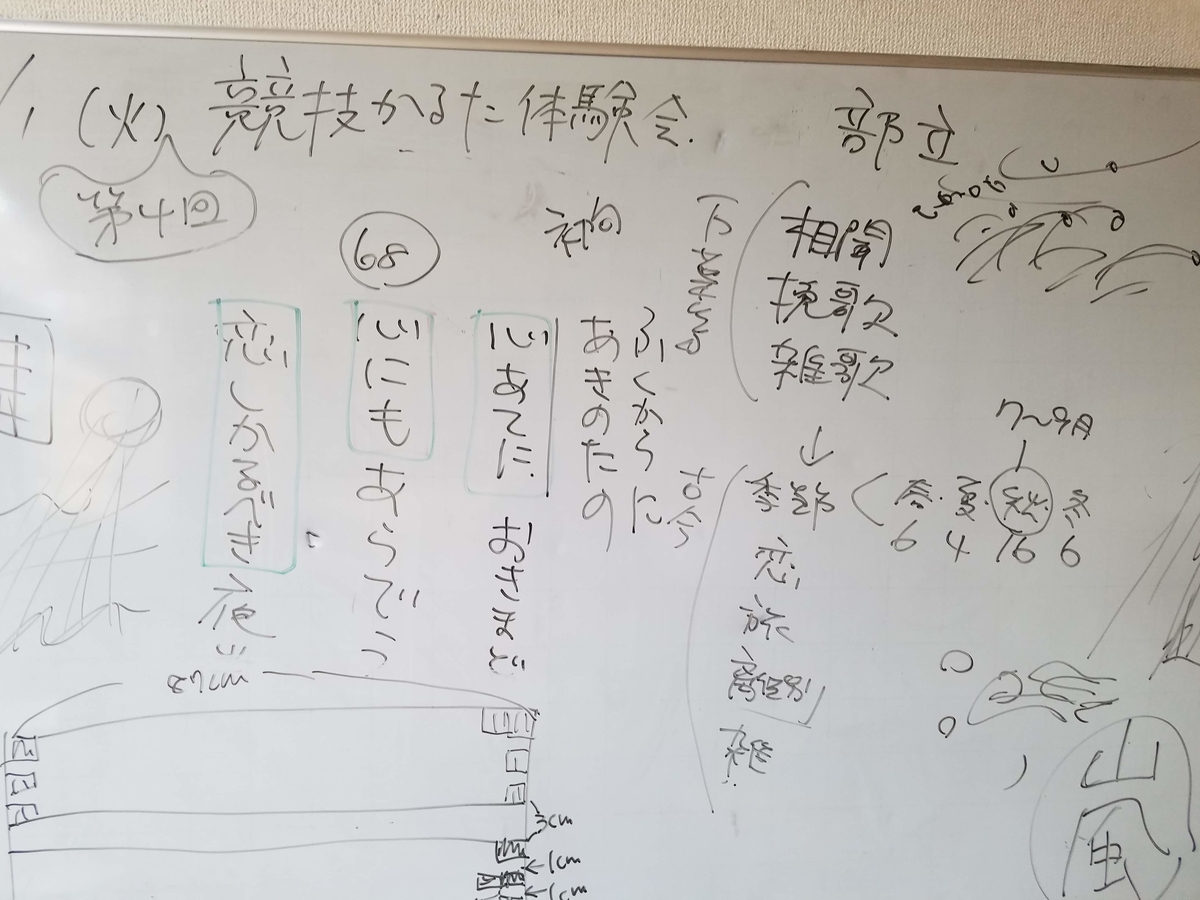 (火) 競技かるた体験会.
第4回
部立
相聞
挽歌
雑歌
↓
季節
恋
旅
離別
雑
古今
7〜9月
春・夏・秋・冬
6 4 16 6
ふくからに
あきのたの
心あてに おきまど
68
心にも あらでう
恋しかるべき 夜
3cm
1cm
1cm
山
風